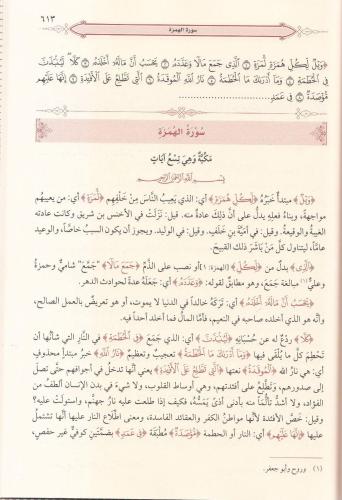 سورة الهمزة
٦١٣
﴿وَيْلٌ لِكُلِّ هُمَزَةٍ لُمَزَةٍ ۝ الَّذِي جَمَعَ مَالًا وَعَدَّدَهُ ۝ يَحْسَبُ أَنَّ مَالَهُ أَخْلَدَهُ ۝ كَلَّا لَيُنْبَذَنَّ
فِي الْحُطَمَةِ ۝ وَمَا أَدْرَاكَ مَا الْحُطَمَةُ ۝ نَارُ اللَّهِ الْمُوقَدَةُ ۝ الَّتِي تَطَّلِعُ عَلَى الْأَفْئِدَةِ ۝ إِنَّهَا عَلَيْهِمْ
مُؤْصَدَةٌ ۝ فِي عَمَدٍ ...............................
سُورَةُ الهُمَزَة
مَكِّيَّةٌ وَهِيَ تِسْعُ آيَاتٍ
بسم الله الرحمن الرحيم
﴿وَيْلٌ﴾ مبتدأ خبَرُهُ ﴿لِكُلِّ هُمَزَةٍ﴾ أي: الذي يَعِيبُ النَّاسَ مِنْ خَلْفِهِم ﴿لُمَزَةٍ﴾ أي: من يعيبهم
مواجهةً، وبناءُ فعلةٍ يدلُّ على أنَّ ذلكَ عادة منه. قيل: نَزَلَتْ في الأخنس بن شريق وكانت عادته
الغيبة والوقيعةُ. وقيل: في أميَّة بنِ خَلَفٍ. وقيل: في الوليد. ويجوز أن يكون السببُ خاصًّا، والوعيد
عامًّا، ليتناول كلَّ مَنْ بَاشَرَ ذلك القبيحَ.
﴿الَّذِي﴾ بدلٌ من ﴿لِكُلِّ﴾ [الهمزة: ١] أو نصب على الذَّمِّ ﴿جَمَعَ مَالًا﴾ "جَمَّعَ" شاميٌّ وحمزةُ
وعليٌّ(١) مبالغة جَمَعَ، وهو مطابقٌ لقوله: ﴿وَعَدَّدَهُ﴾ أي: جَعَلَهُ عدةً لحوادث الدهر.
﴿يَحْسَبُ أَنَّ مَالَهُ أَخْلَدَهُ﴾ أي: تَرَكَهُ خالدًا في الدنيا لا يموت، أو هو تعريضٌ بالعمل الصالح،
وأنَّه هو الذي أخلدَ صاحبه في النعيم، فأمَّا المالُ فما أخلد أحدًا فيه.
﴿كَلَّا﴾ ردعٌ له عن حُسْبَانِهِ ﴿لَيُنْبَذَنَّ﴾ أي: الذي جَمَعَ ﴿فِي الْحُطَمَةِ﴾ في النَّارِ التي شأنُها أن
تَحْطِمَ كلَّ ما يُلقَى فيها ﴿وَمَا أَدْرَاكَ مَا الْحُطَمَةُ﴾ تعجيبٌ وتعظيمٌ ﴿نَارُ اللَّهِ﴾ خبرُ مبتدأ محذوفٍ
أي: هي نارُ الله ﴿الْمُوقَدَةُ﴾ نعتها ﴿الَّتِي تَطَّلِعُ عَلَى الْأَفْئِدَةِ﴾ يعني أنَّها تدخلُ في أجوافِهم حتَّى تصلَ
إلى صدورهم، وتَطَّلِعَ على أفئدتهم، وهي أوساط القلوب، ولا شيءَ في بدن الإنسان ألطفُ من
الفؤاد، ولا أشدُّ تألُّمًا منه بأدنى أذىً يَمَسُّهُ، فكيف إذا طلعت عليه نارُ جهنَّم، واستولت عليه؟
وقيل: خَصَّ الأفئدةَ لأنَّها مواطنُ الكفرِ والعقائد الفاسدة، ومعنى اطِّلاعِ النار عليها أنَّها تشتملُ
عليها ﴿إِنَّهَا عَلَيْهِمْ﴾ أي: النار أو الحطمة ﴿مُؤْصَدَةٌ﴾ مُطْبَقَة ﴿فِي عَمَدٍ﴾ بضمَّتين كوفيٌّ غير حفص،
(١) وروح وأبو جعفر.